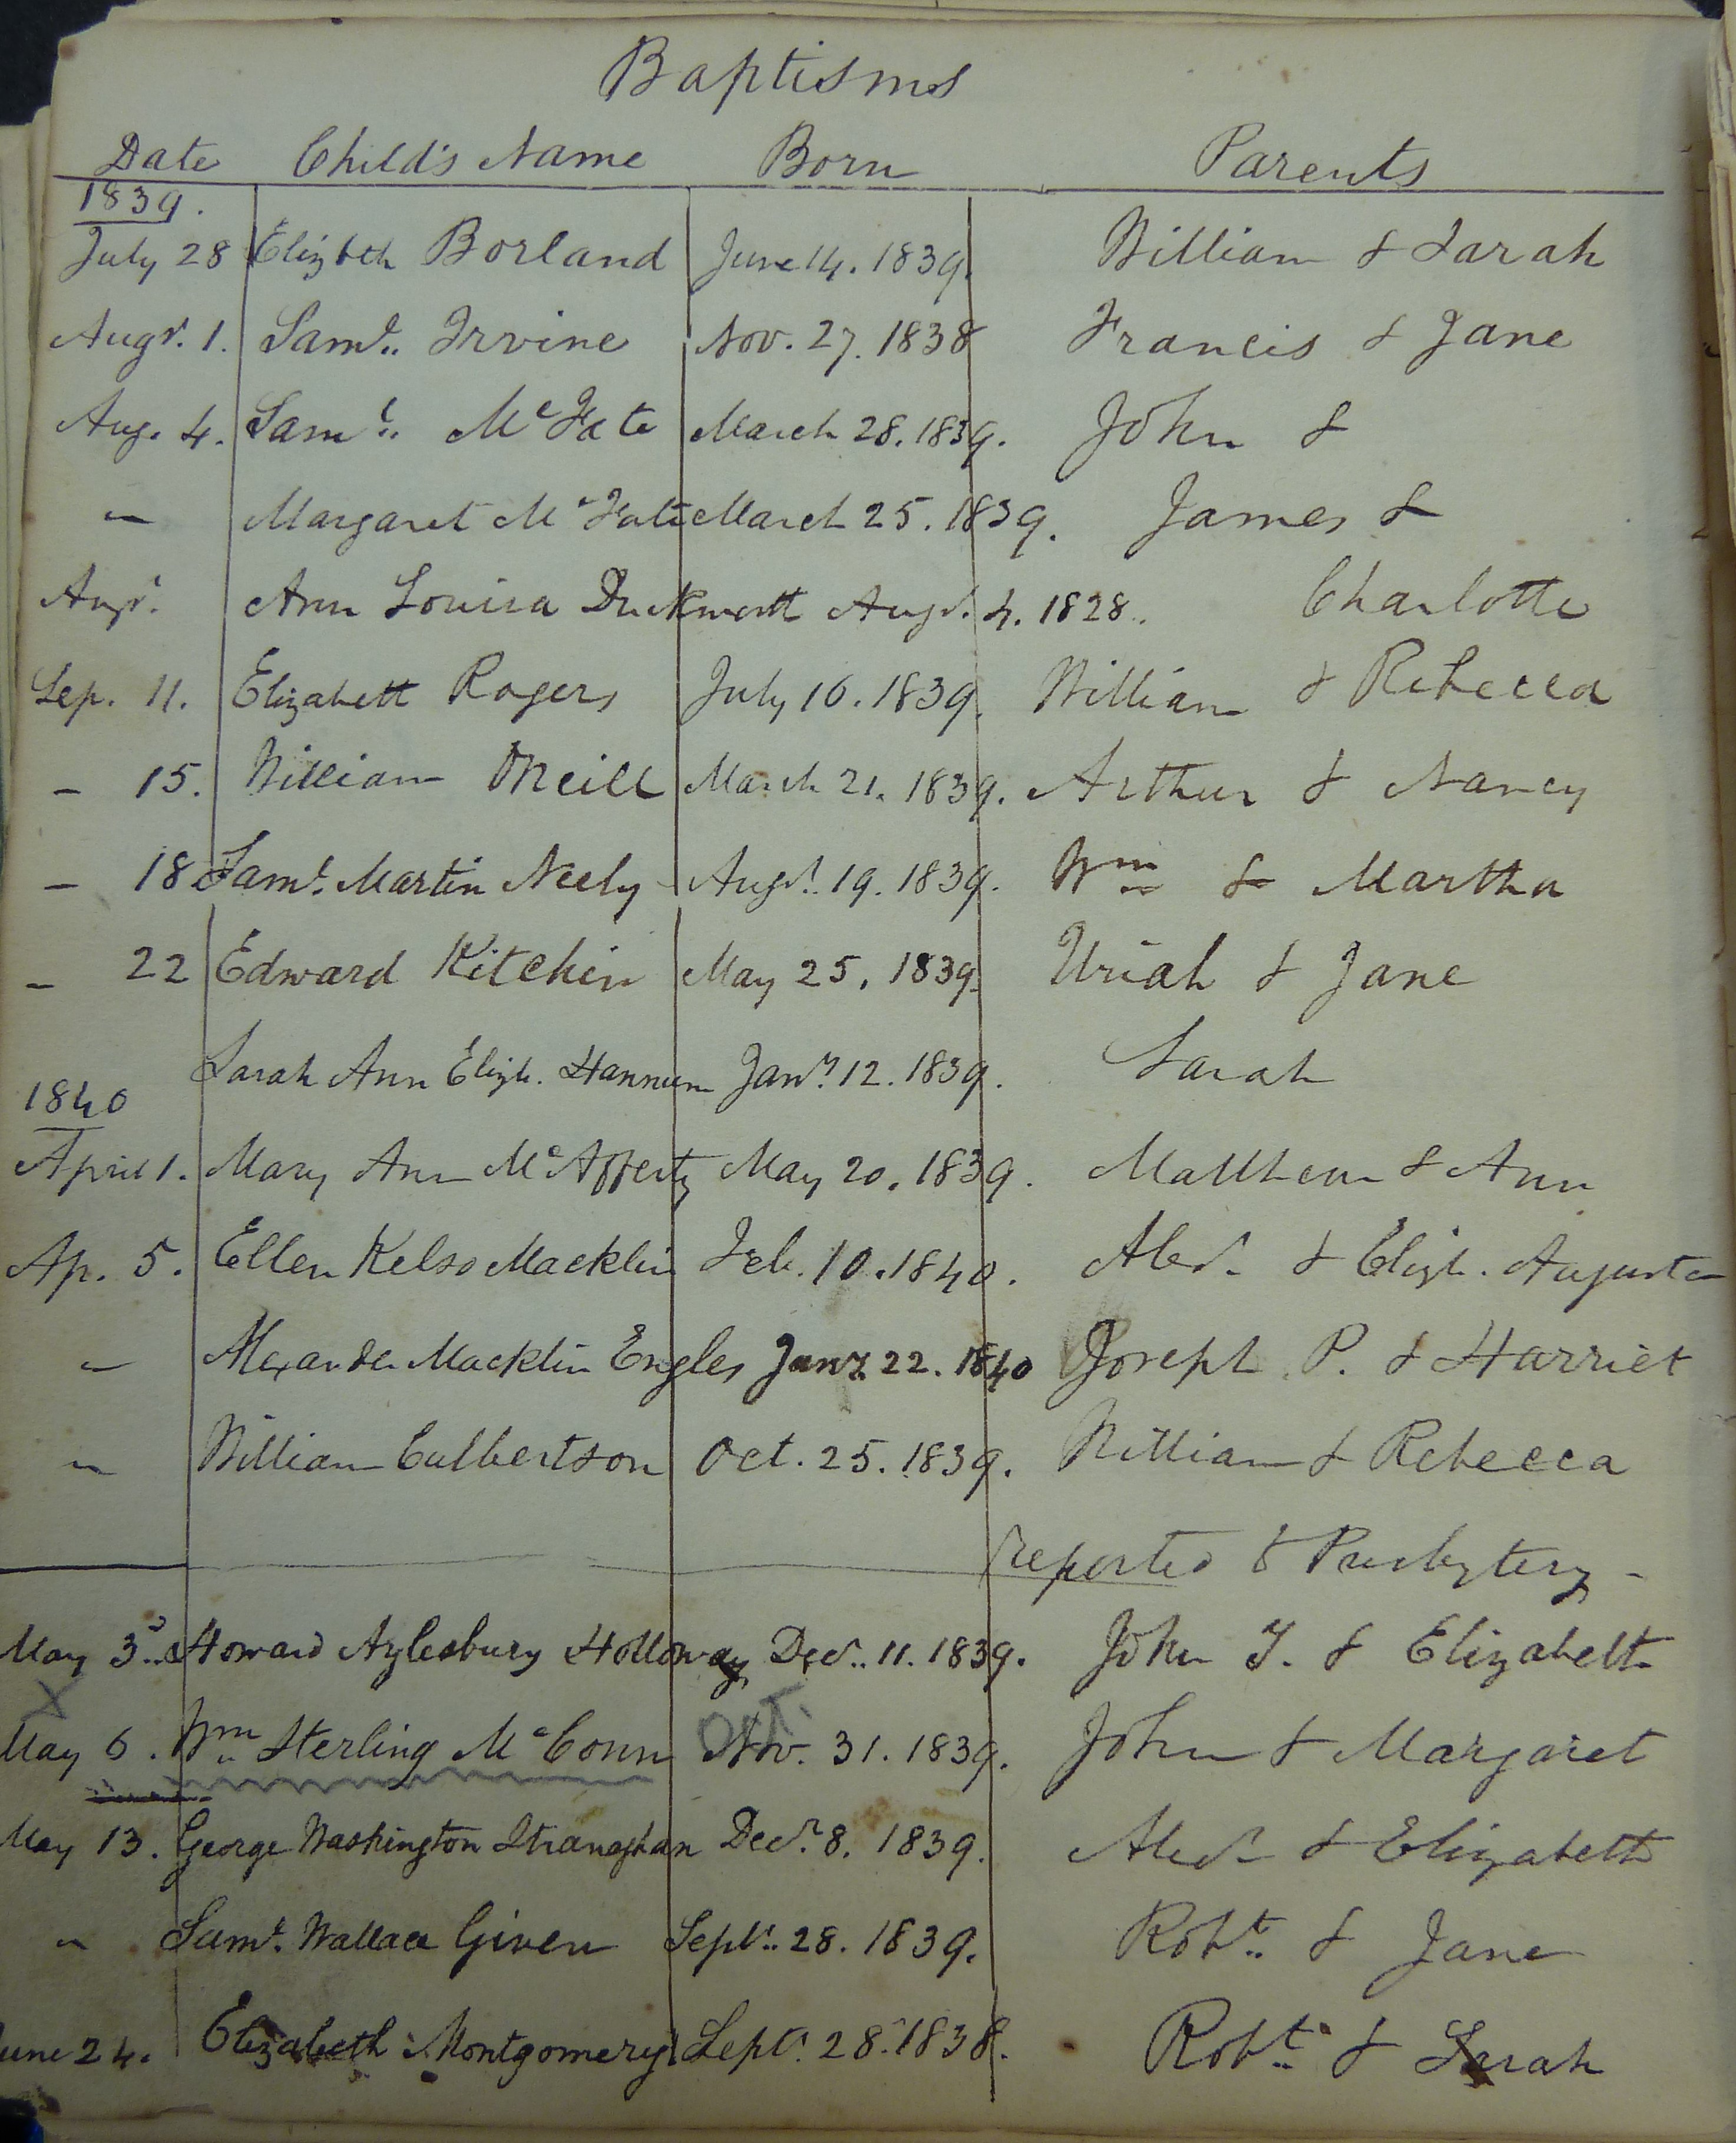 Baptisms
Date Child's Name Born Parents
1839.
July 28 Elizbth Borland June 14. 1839. William & Sarah
Augt. 1. Saml. Irvine Nov. 27. 1838 Francis & Jane
Aug. 4. Saml. McFate March 28. 1839. John &
" Margaret McFate March 25. 1839. James &
Augt. Ann Louisa Duckworth Augt. 4. 1828. Charlotte
Sep. 11. Elizabeth Rogers July 16. 1839. William & Rebecca
– 15. William ONeill March 21. 1839. Arthur & Nancy
– 18 Saml. Martin Neely Augt. 19. 1839. Wm & Martha
– 22 Edward Kitchin May 25. 1839. Uriah & Jane
Sarah Ann Elizh. Hannum Jany. 12. 1839. Sarah
1840
April 1. Mary Ann McAfferty May 20. 1839. Matthew & Ann
Ap. 5. Ellen Kelso Macklin Feb. 10. 1840. Alexr. & Elizh. Augusta
" Alexander Macklin Engles Jany. 22. 1840 Joseph P. & Harriet
" William Culbertson Oct. 25. 1839. William & Rebecca
reported to Presbytery –
May 3d. Howard Aylesbury Holloway Decr. 11. 1839. John T. & Elizabeth
X Oct.
May 6. Wm Sterling McConn Nov. 31. 1839. John & Margaret
May 13. George Washington Stranaghan Decr. 8. 1839. Alexr. & Elizabeth
" Saml. Wallace Given Septr. 28. 1839. Robt. & Jane
June 24. Elizabeth Montgomery Septr. 28. 1838. Robt. & Sarah